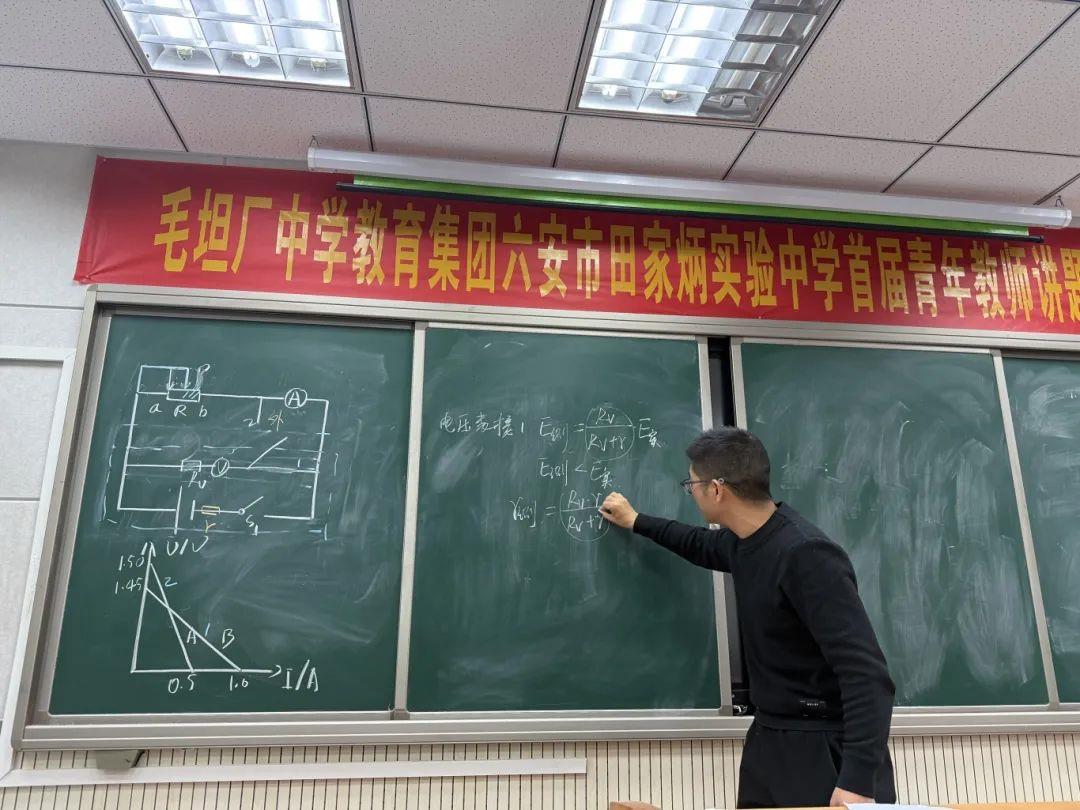 毛坦厂中学教育集团六安市田家炳实验中学首届青年教师讲题
P
a R b
A
2
外
V
Rv
r
S
U/V
1.50
1.45
2
A
1
B
0.5
1.0
I/A
E测 = Rv/(Rv+r) · E实
E测 < E实
r测 = Rv·r/(Rv+r)